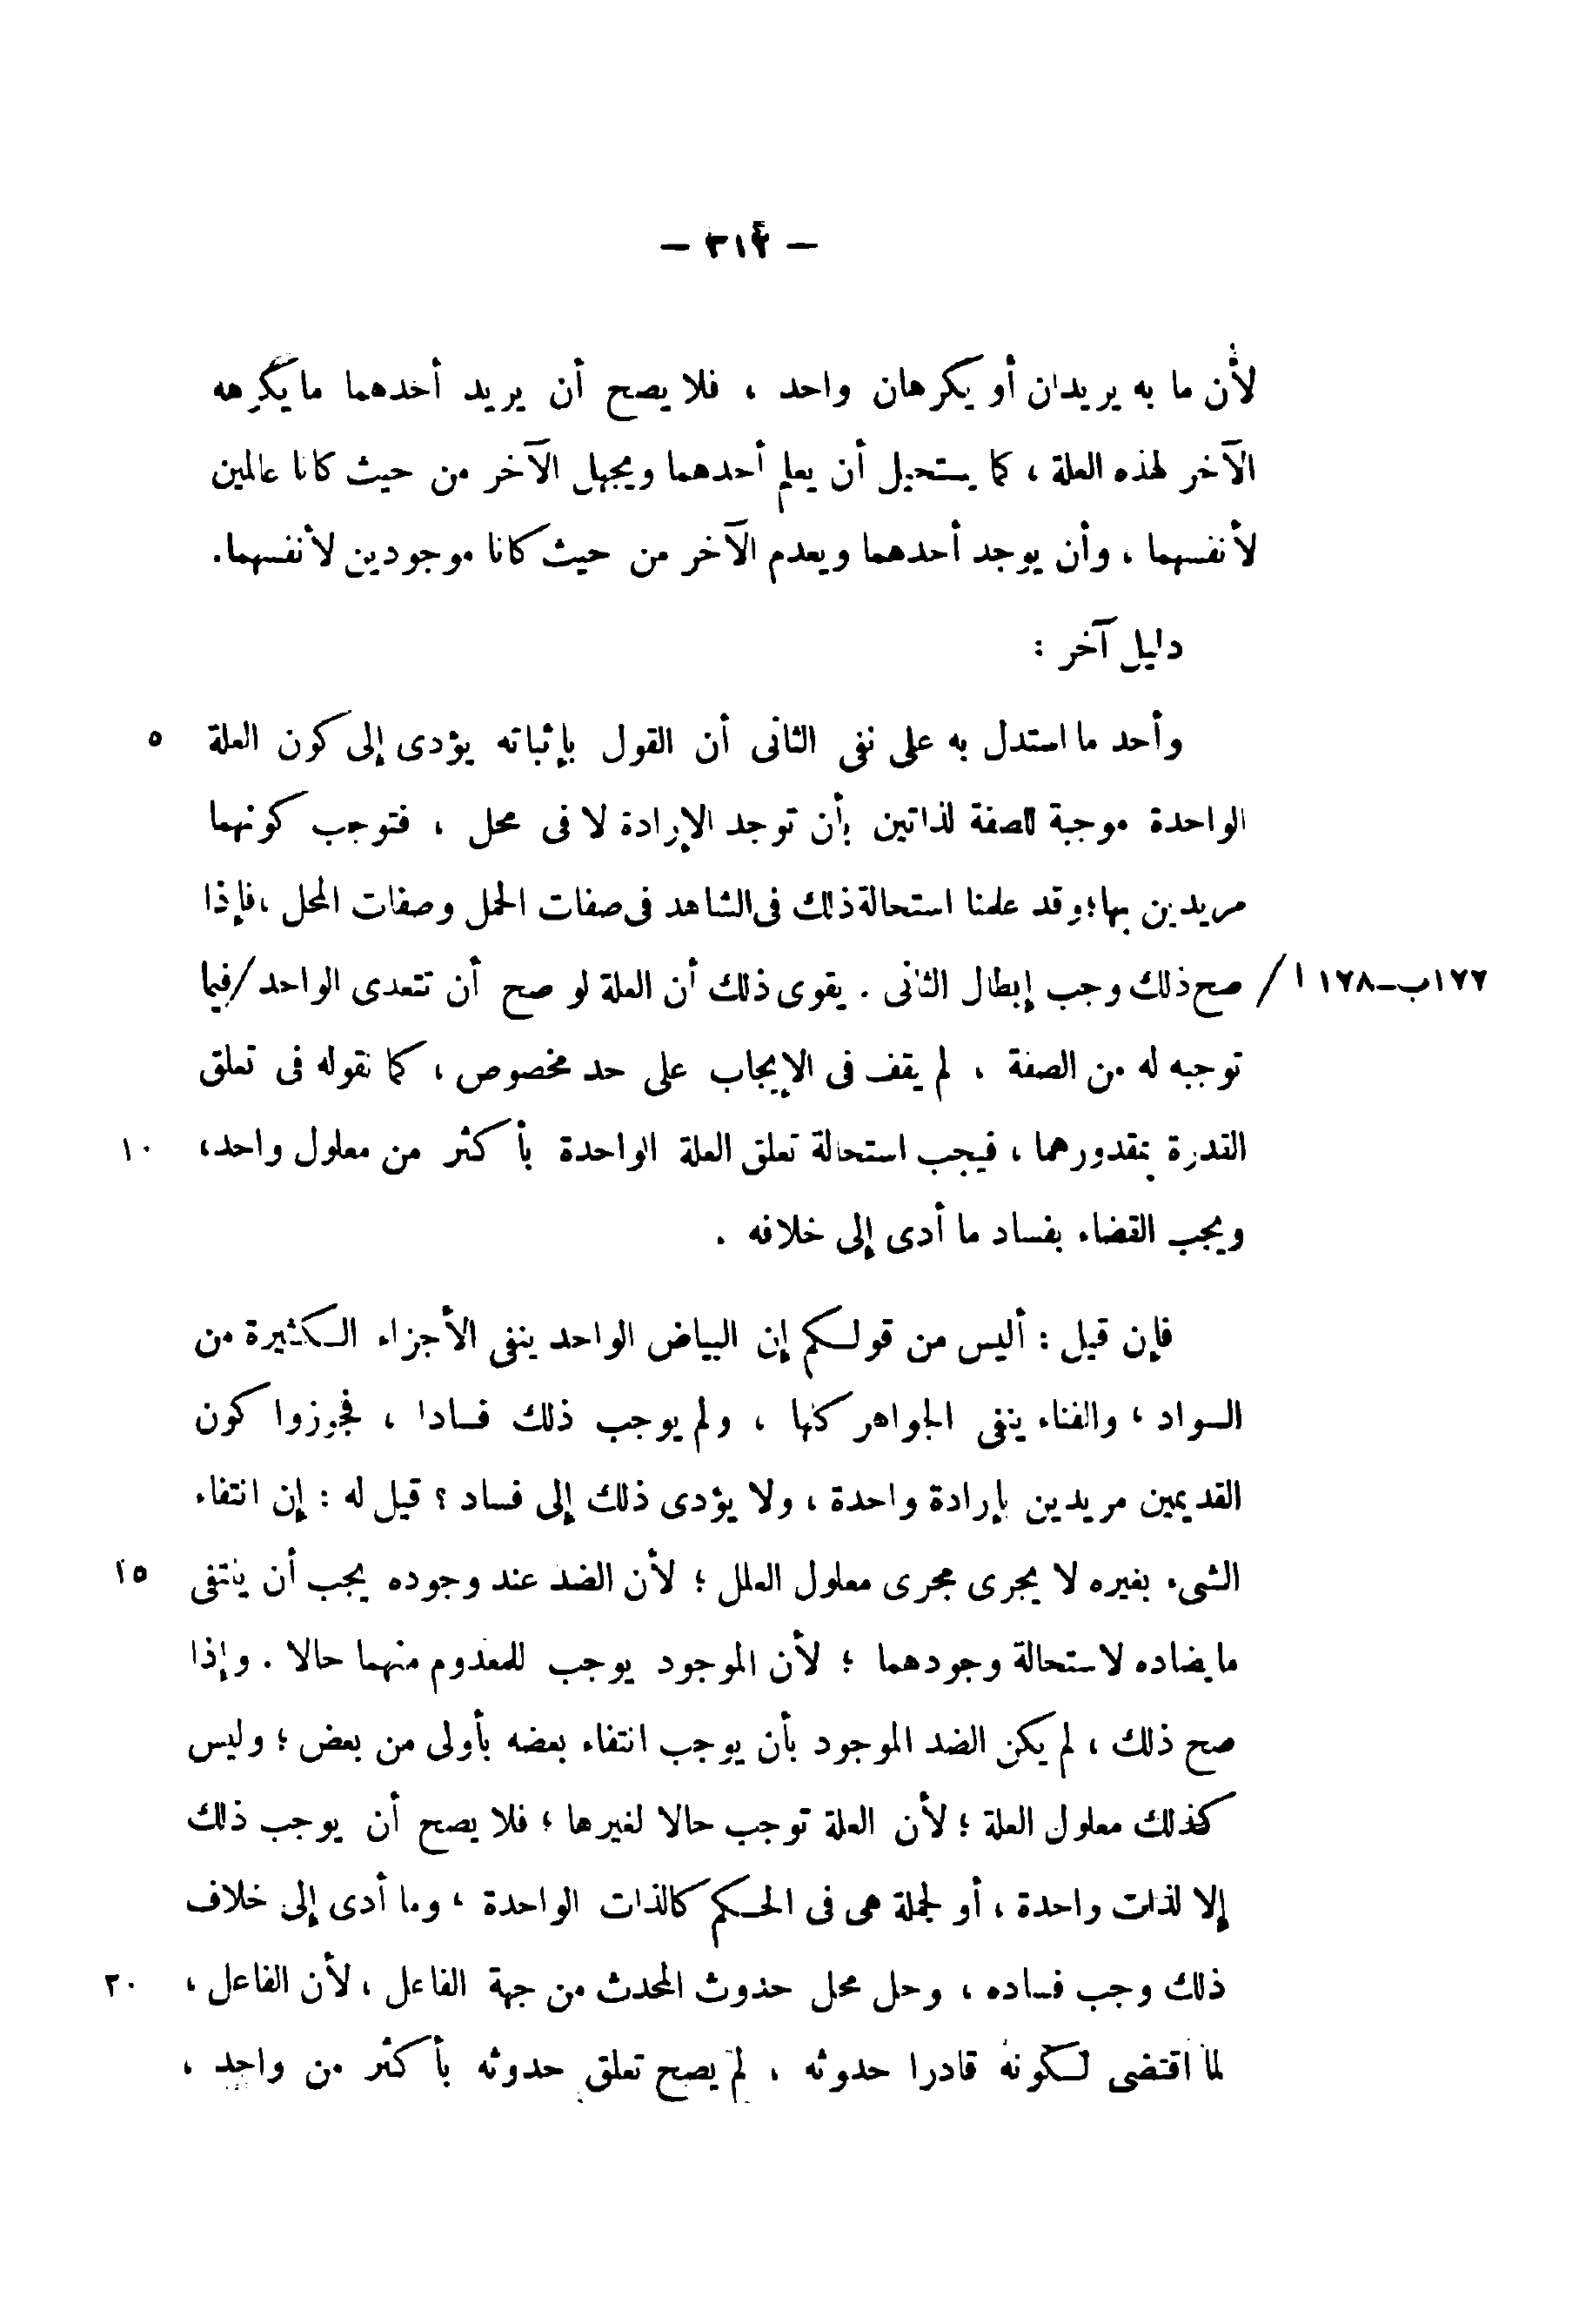 لأن ما به يريدان أو يكرهان واحد ، فلا يصح أن يريد أحدهما ما يكرهه
الآخر لهذه العلة ، كما يستحيل أن يعلم أحدهما ويجهل الآخر من حيث كانا عالمين
لأنفسهما ، وأن يوجد أحدهما ويعدم الآخر من حيث كانا موجودين لأنفسهما.
دليل آخر :
وأحد ما استدل به على نفى الثانى أن القول بإثباته يؤدى إلى كون العلة ٥
الواحدة موجبة للصفة لذاتين بأن توجد الإرادة لا فى محل ، فتوجب كونهما
مريدين بها ؛ وقد علمنا استحالة ذلك فى الشاهد فى صفات الحمل وصفات المحل ، فإذا
١٧٧ب-١٧٨ ا / صح ذلك وجب إبطال الثانى . يقوى ذلك أن العلة لو صح أن تتعدى الواحد / فيما
توجبه له من الصفة ، لم يقف فى الإيجاب على حد مخصوص ، كما نقوله فى تعلق
القدرة بمقدورهما ، فيجب استحالة تعلق العلة الواحدة بأكثر من معلول واحد، ١٠
ويجب القضاء بفساد ما أدى إلى خلافه .
فإن قيل : أليس من قولكم إن البياض الواحد ينفى الأجزاء الكثيرة من
السواد ، والفناء ينفى الجواهر كلها ، ولم يوجب ذلك فسادا ، فجوزوا كون
القديمين مريدين بإرادة واحدة ، ولا يؤدى ذلك إلى فساد ؟ قيل له : إن انتفاء
الشىء بغيره لا يجرى مجرى معلول العلل ؛ لأن الضد عند وجوده يجب أن ينتفى ١٥
ما يضاده لاستحالة وجودهما ؛ لأن الموجود يوجب للمعدوم منهما حالا . وإذا
صح ذلك ، لم يكن الضد الموجود بأن يوجب انتفاء بعضه بأولى من بعض ؛ وليس
كذلك معلول العلة ؛ لأن العلة توجب حالا لغيرها ؛ فلا يصح أن يوجب ذلك
إلا لذات واحدة ، أو لجملة هى فى الحكم كالذات الواحدة ، وما أدى إلى خلاف
ذلك وجب فساده ، وحل محل حدوث المحدث من جهة الفاعل ، لأن الفاعل ، ٢٠
لما اقتضى لكونه قادرا حدوثه ، لم يصح تعلق حدوثه بأكثر من واحد ،